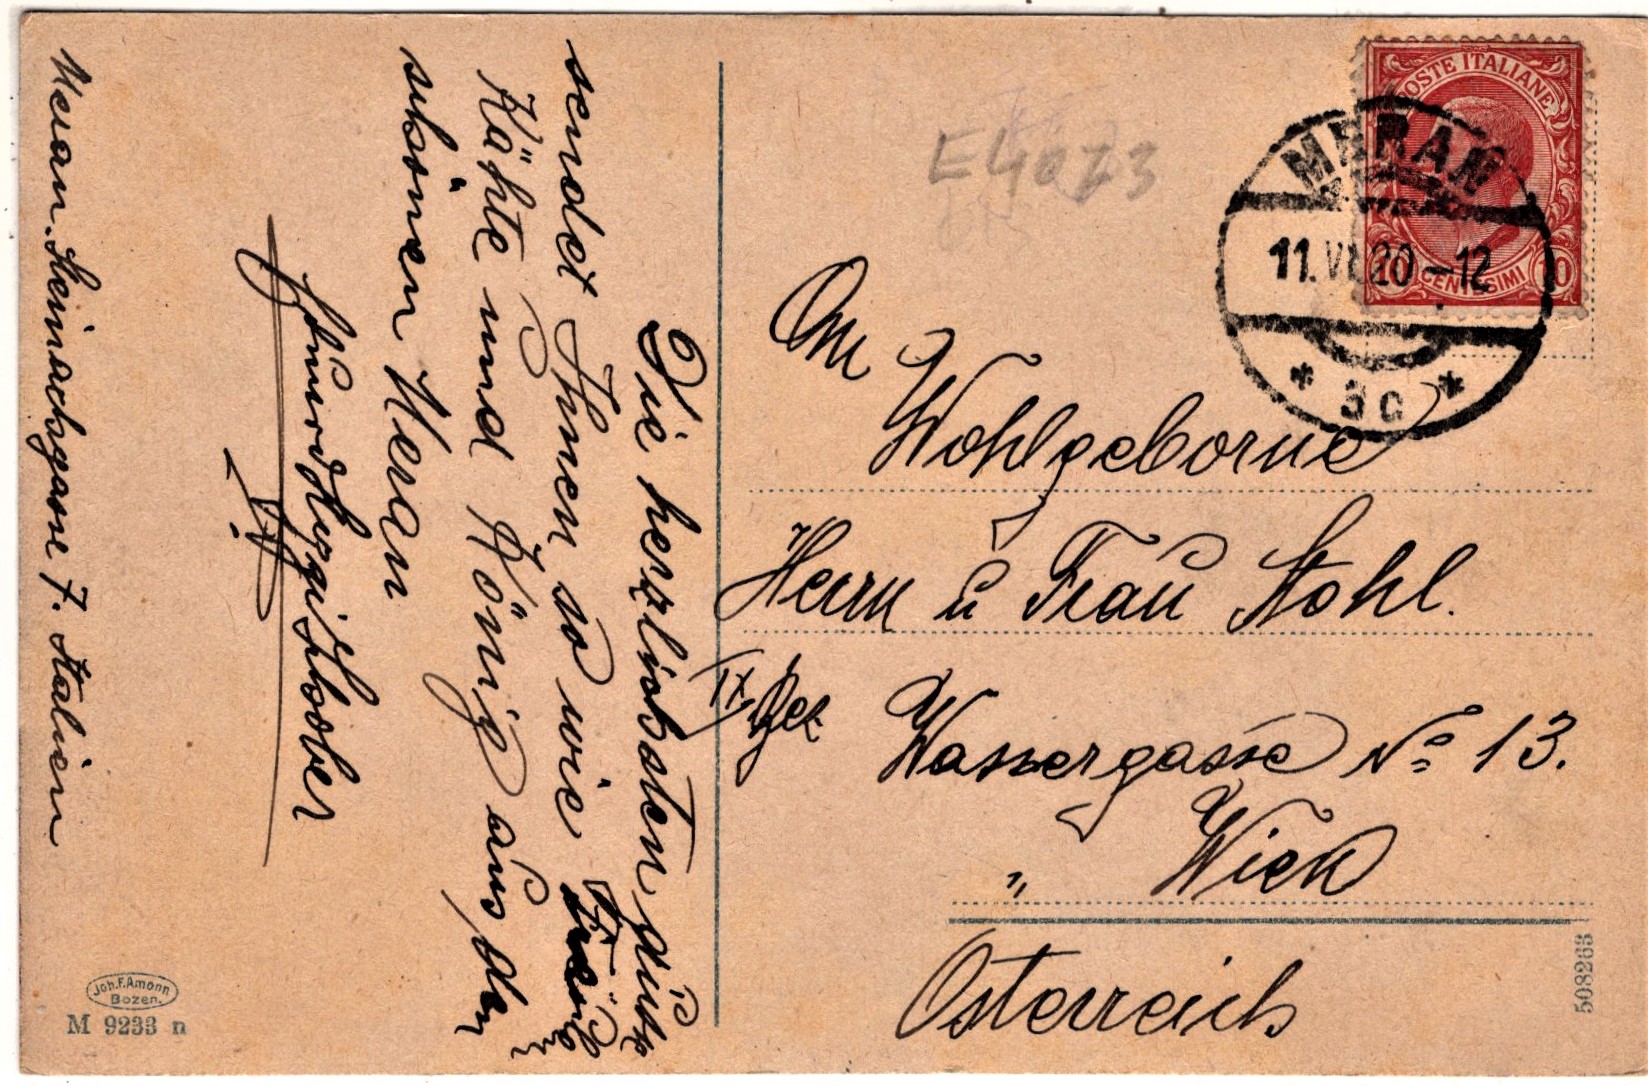 Die herzlichsten Grüße
sendet Ihnen so wie Fräul
Käthe und König aus dem
schönen Meran
Meran. Steinachgasse 7. Italien
Joh. F. Amonn
Bozen.
M 9233 n
E4073
POSTE ITALIANE
10 CENTESIMI 10
MERAN
11.VI.20.-12
* 3c *
An
Wohlgeborne
Herrn u Frau Stohl.
IV. Bez Wassergasse No 13.
" Wien
Österreich
508263